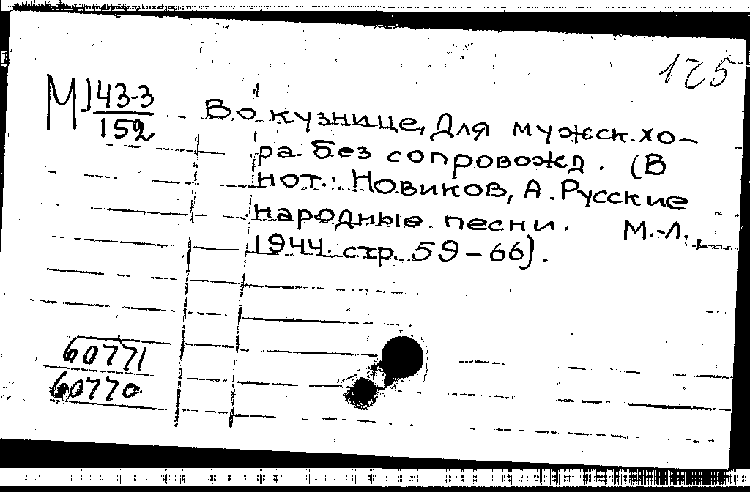 125
М 143-3
152
Во кузнице, Для мужск. хо-
ра без сопровожд. (В
нот.: Новиков, А. Русские
народные песни. М.-Л.,
1944. стр. 59-66).
60771
60770